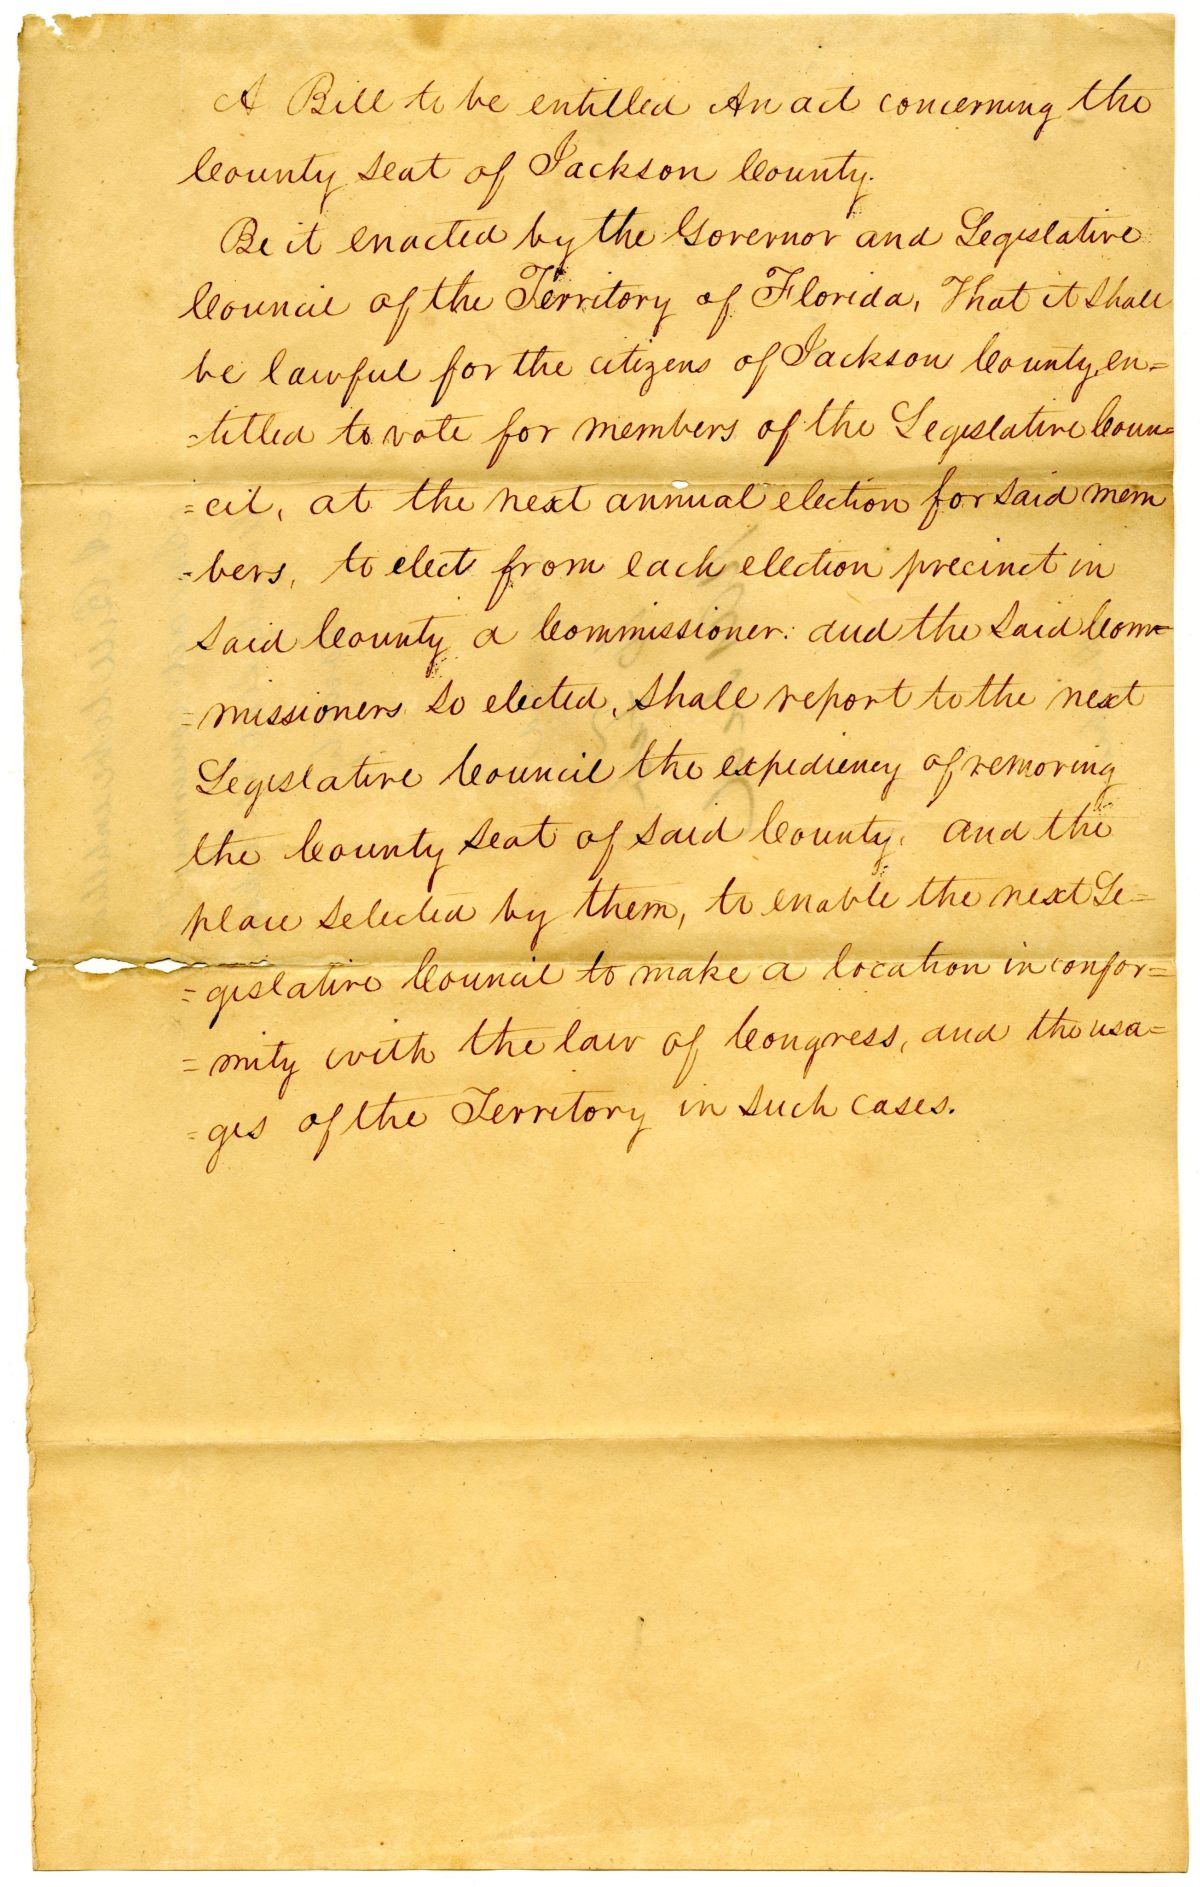 A Bill to be entitled An act concerning the
County seat of Jackson County.
Be it enacted by the Governor and Legislative
Council of the Territory of Florida, That it shall
be lawful for the citizens of Jackson County, en=
=titled to vote for members of the Legislative Coun=
=cil, at the next annual election for said mem
=bers, to elect from each election precinct in
said County a Commissioner: and the said Com=
=missioners so elected, shall report to the next
Legislative Council the expediency of removing
the County seat of said County, and the
place selected by them, to enable the next Le=
=gislative Council to make a location in confor=
=mity with the law of Congress, and the usa=
=ges of the Territory in such cases.